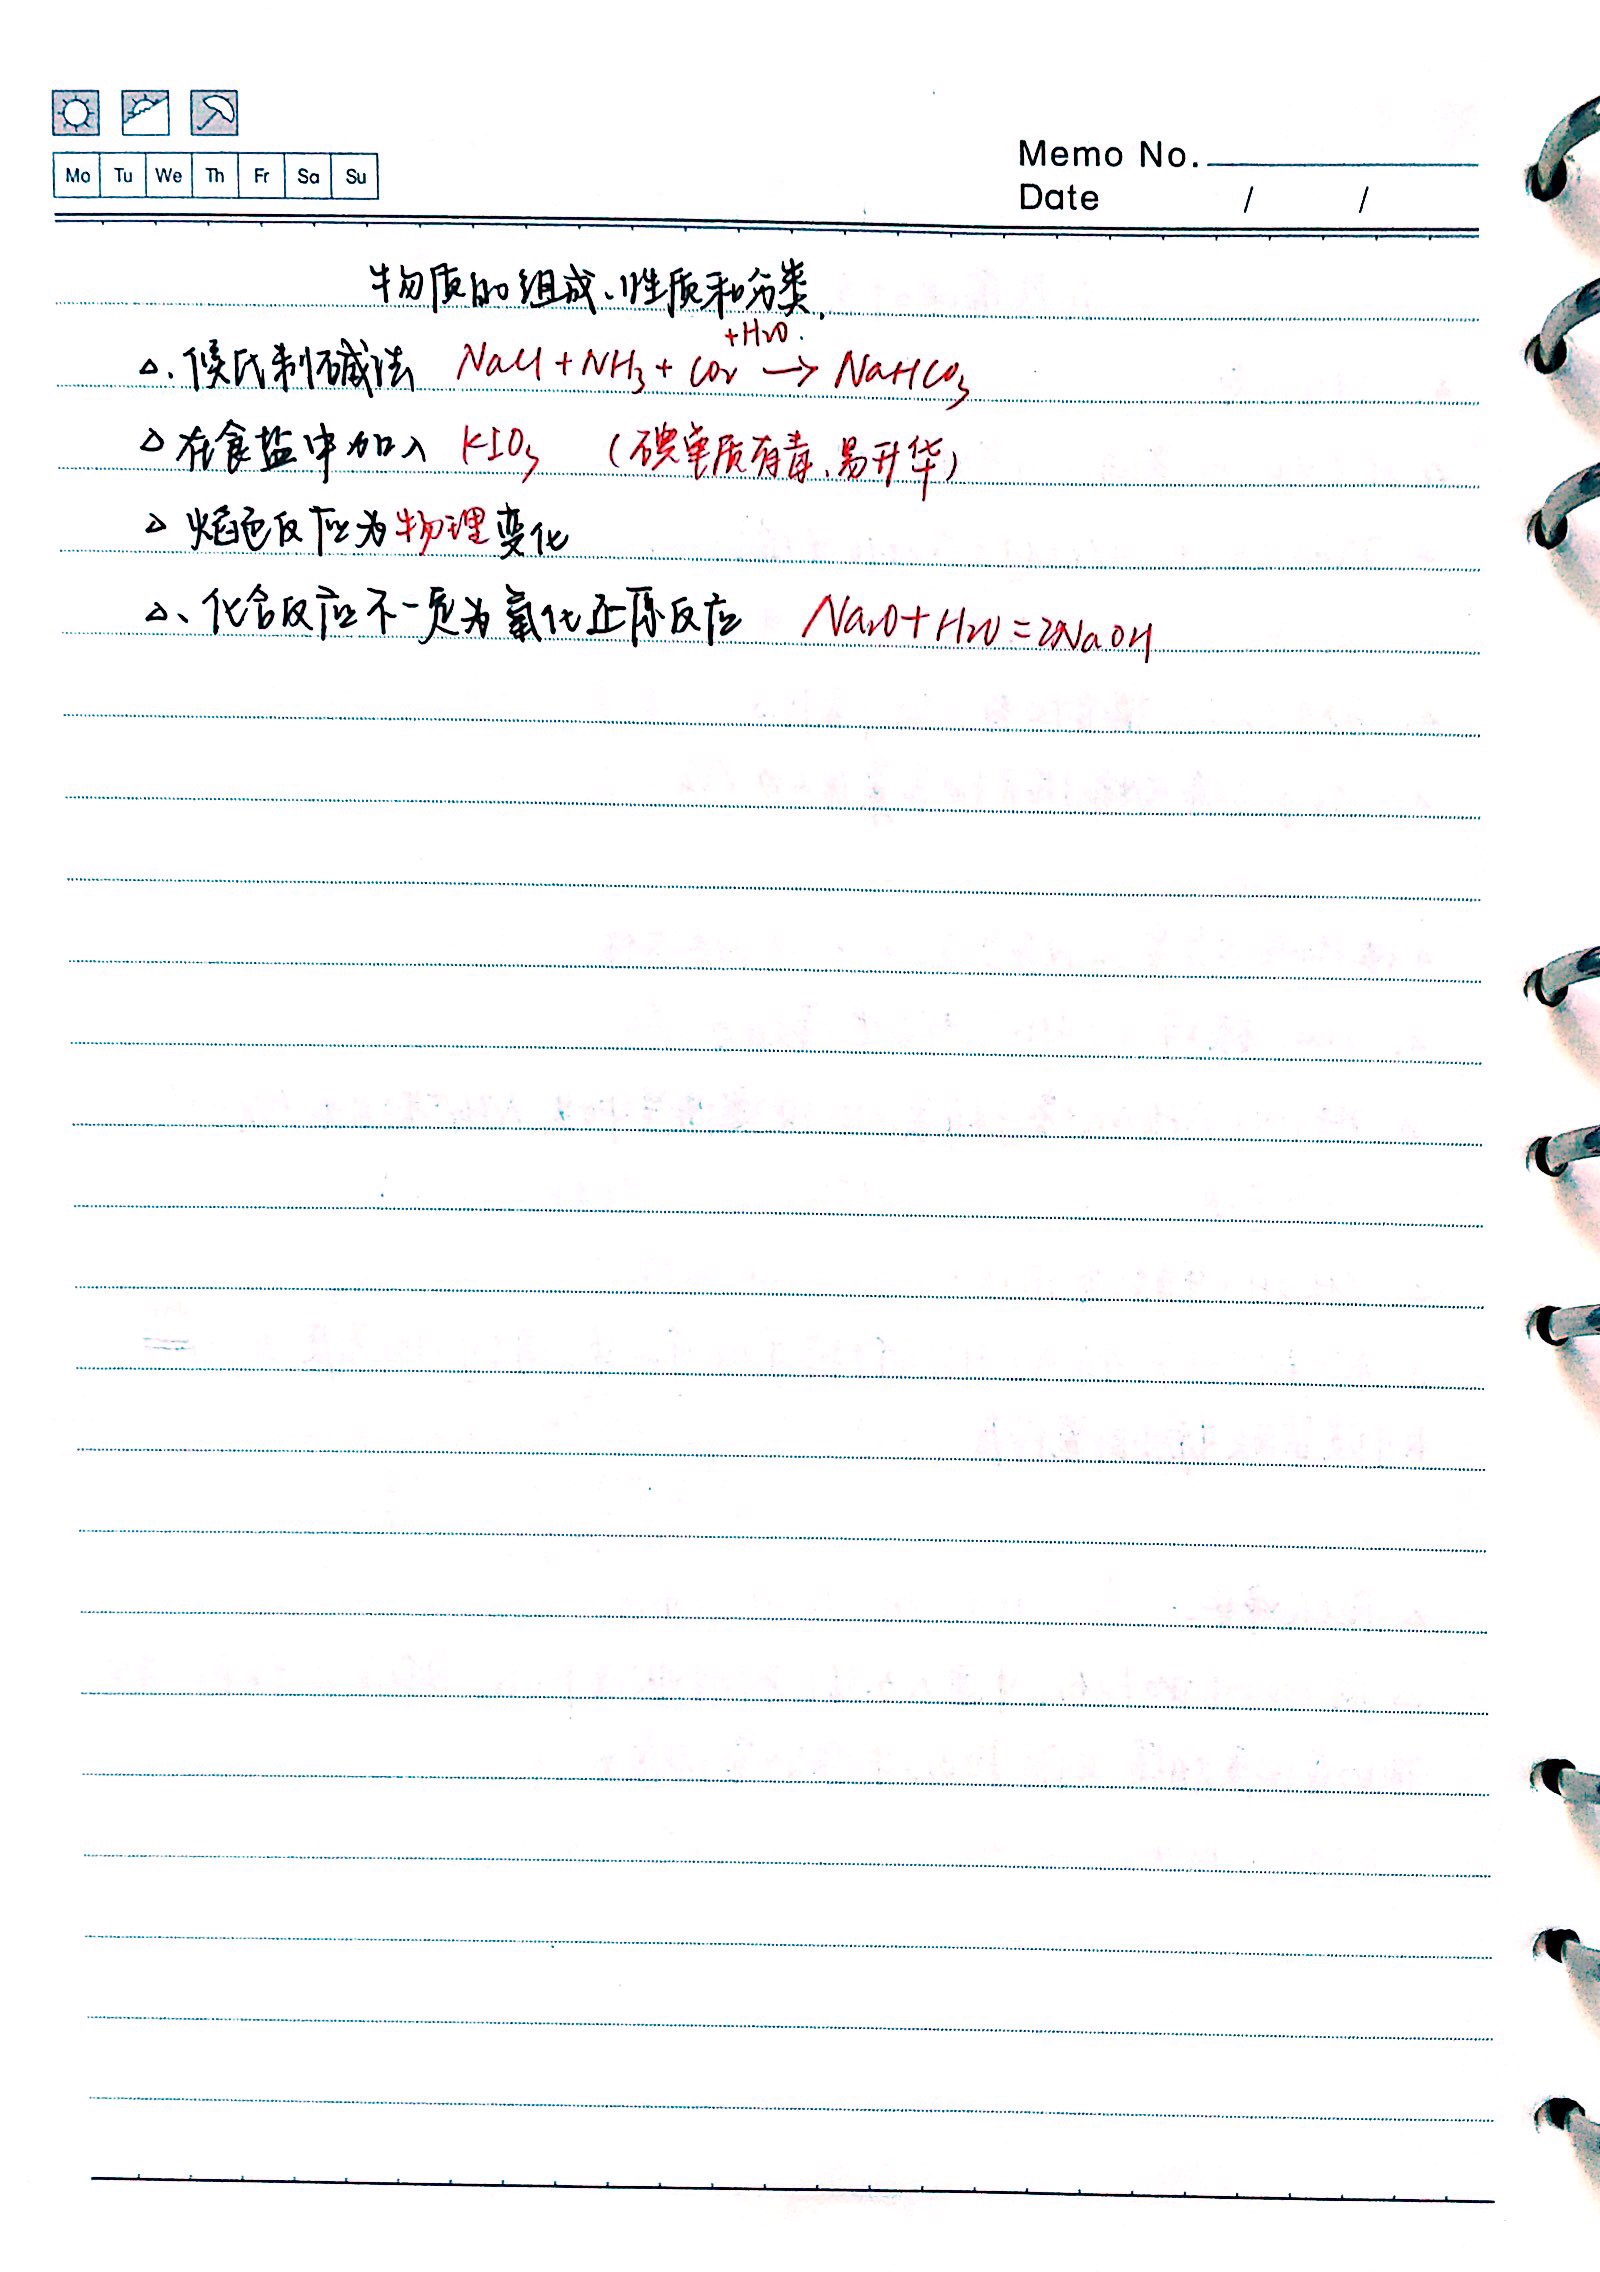 Mo Tu We Th Fr Sa Su
Memo No.
Date / /
物质的组成、性质和分类
+H₂O
△、侯氏制碱法 NaCl+NH₃+CO₂ → NaHCO₃
△ 在食盐中加入 KIO₃ (碘单质有毒、易升华)
△ 焰色反应为物理变化
△、化合反应不一定为氧化还原反应 Na₂O+H₂O=2NaOH